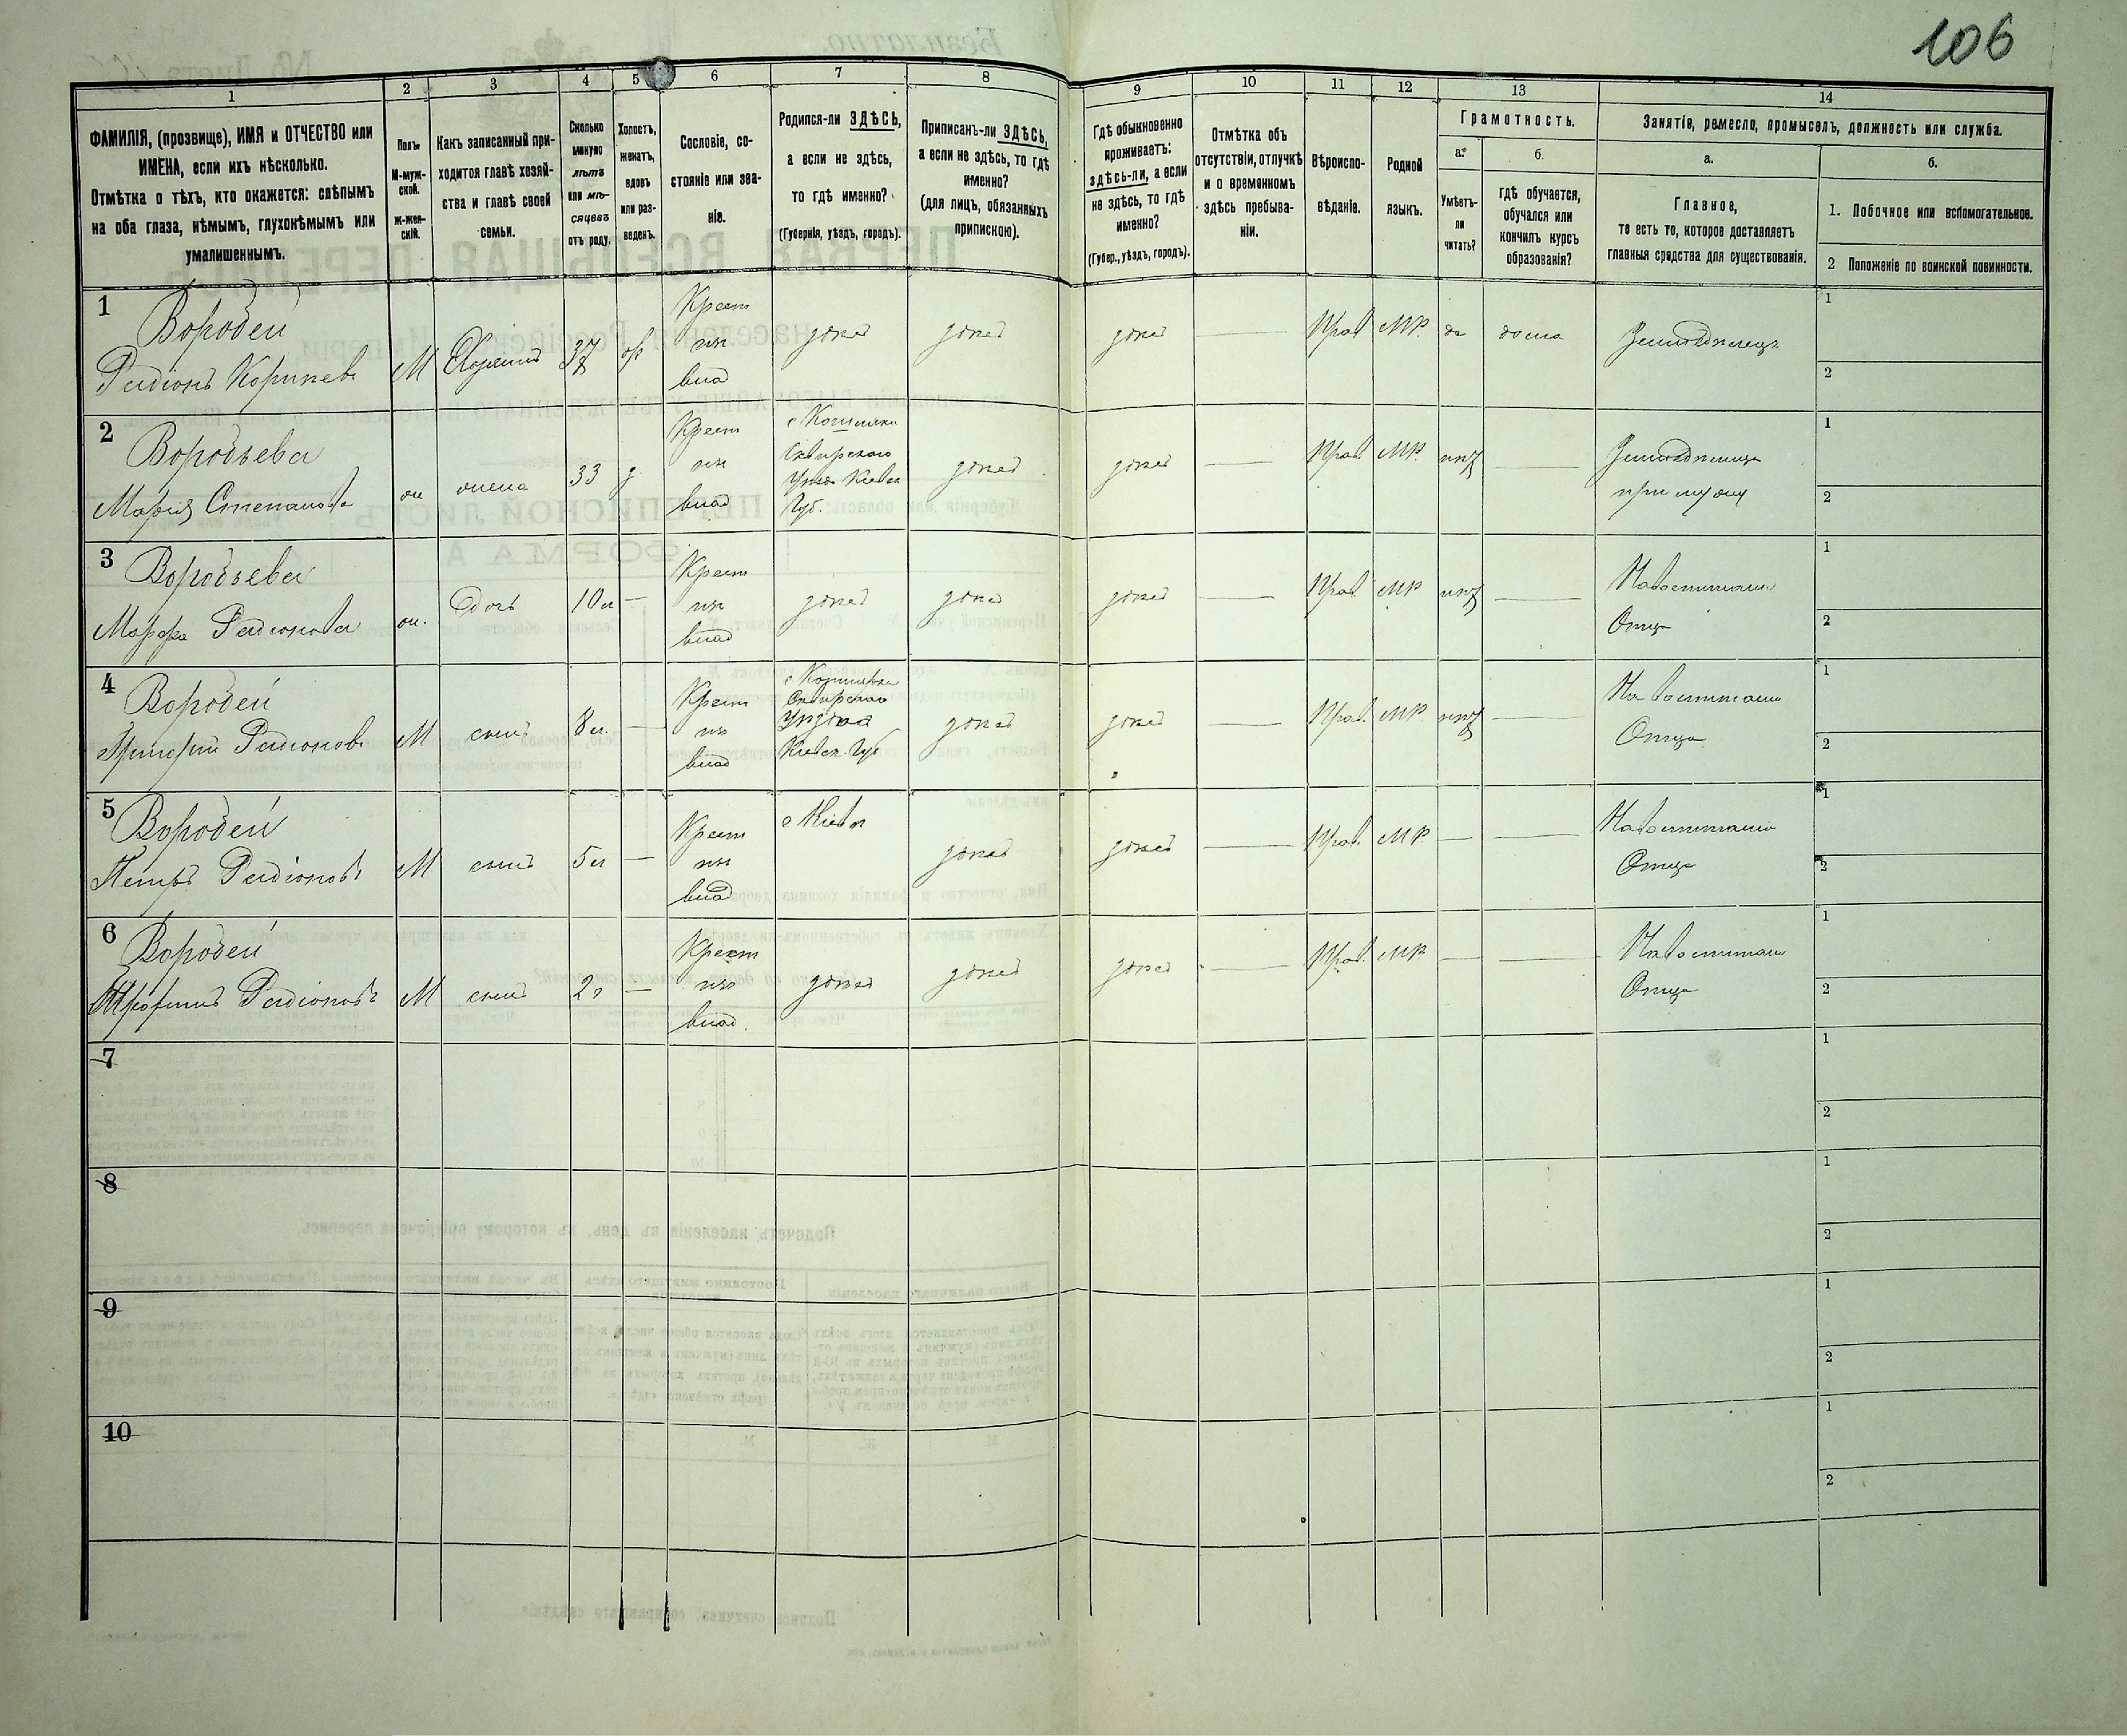 106
1 2 3 4 5 6 7 8 9 10 11 12 13 14
ФАМИЛІЯ, (прозвище), ИМЯ и ОТЧЕСТВО или
ИМЕНА, если ихъ нѣсколько.
Отмѣтка о тѣхъ, кто окажется: слѣпымъ
на оба глаза, нѣмымъ, глухонѣмымъ или
умалишеннымъ.
Полъ.
М-муж-
ской.
Ж-жен-
скій.
Какъ записанный при-
ходится главѣ хозяй-
ства и главѣ своей
семьи.
Сколько
минуло
лѣтъ
или мѣ-
сяцевъ
отъ роду.
Холостъ,
женатъ,
вдовъ
или раз-
веденъ.
Сословіе, со-
стояніе или зва-
ніе.
Родился-ли ЗДѢСЬ,
а если не здѣсь,
то гдѣ именно?
(Губернія, уѣздъ, городъ).
Приписанъ-ли ЗДѢСЬ,
а если не здѣсь, то гдѣ
именно?
(для лицъ, обязанныхъ
припискою).
Гдѣ обыкновенно
проживаетъ:
здѣсь-ли, а если
не здѣсь, то гдѣ
именно?
(Губер., уѣздъ, городъ).
Отмѣтка объ
отсутствіи, отлучкѣ
и о временномъ
здѣсь пребыва-
ніи.
Вѣроиспо-
вѣданіе.
Родной
языкъ.
Грамотность.
а.
Умѣетъ-
ли
читать?
б.
гдѣ обучается,
обучался или
кончилъ курсъ
образованія?
Занятіе, ремесло, промыселъ, должность или служба.
а.
Главное,
то есть то, которое доставляетъ
главныя средства для существованія.
б.
1. Побочное или вспомогательное.
2 Положеніе по воинской повинности.
1
Воробей
Радіонъ Корнеевъ
М
Хозяинъ
37
Крест
изъ
влад
здѣсь
здѣсь
здѣсь
Прав
МР.
да
дома
Земледѣлецъ
1
2
2
Воробьева
Мария Степанова
жена
33
Крест
изъ
влад
Сквирского
Уѣзда Киевск
Губ.
здѣсь
здѣсь
Прав.
МР.
нѣт
Земледѣлица
при мужу
1
2
3
Воробьева
Марфа Радионова
Дочь
10 л
Крест
изъ
влад
здѣсь
здѣсь
здѣсь
Прав.
МР
нѣт
На воспитании
Отца
1
2
4
Воробей
Григорий Радионовъ
М
сынъ
8 л.
Крест
изъ
влад
Сквирского
Уѣзда
Киевск. Губ
здѣсь
здѣсь
Прав.
МР
нѣт
На воспитании
Отца
1
2
5
Воробей
Петръ Радіоновъ
М
сынъ
5 л
Крест
изъ
влад
здѣсь
здѣсь
Прав.
МР.
На воспитании
Отца
1
2
6
Воробей
Трофимъ Радіоновъ
М
сынъ
2 г
Крест
изъ
влад.
здѣсь
здѣсь
здѣсь
Прав.
МР
На воспитании
Отца
1
2
7
1
2
8
1
2
9
1
2
10
1
2